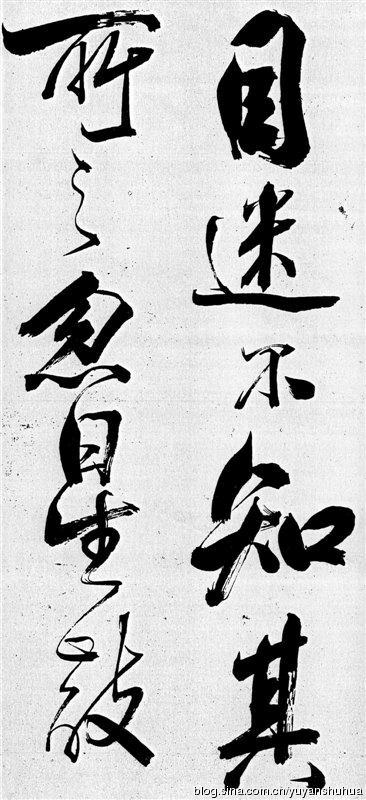 目迷不知其
所之忽星散
blog.sina.com.cn/yuyanshuhua